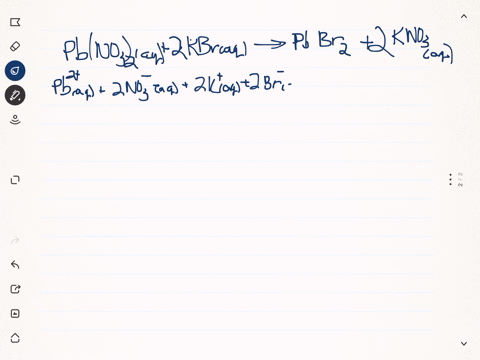 Pb(NO3)2(aq) + 2KBr(aq) → PbBr2 + 2KNO3(aq)
Pb2+(aq) + 2NO3-(aq) + 2K+(aq) + 2Br-(